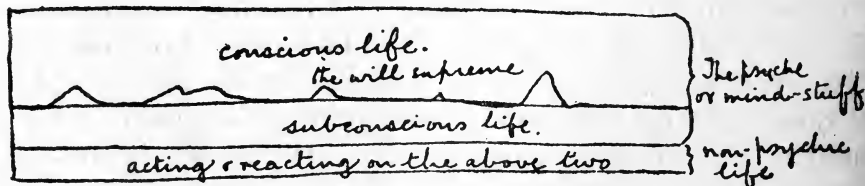 conscious life.
the will supreme
subconscious life.
acting & reacting on the above two
The psyche
or mind-stuff
non-psychic
life